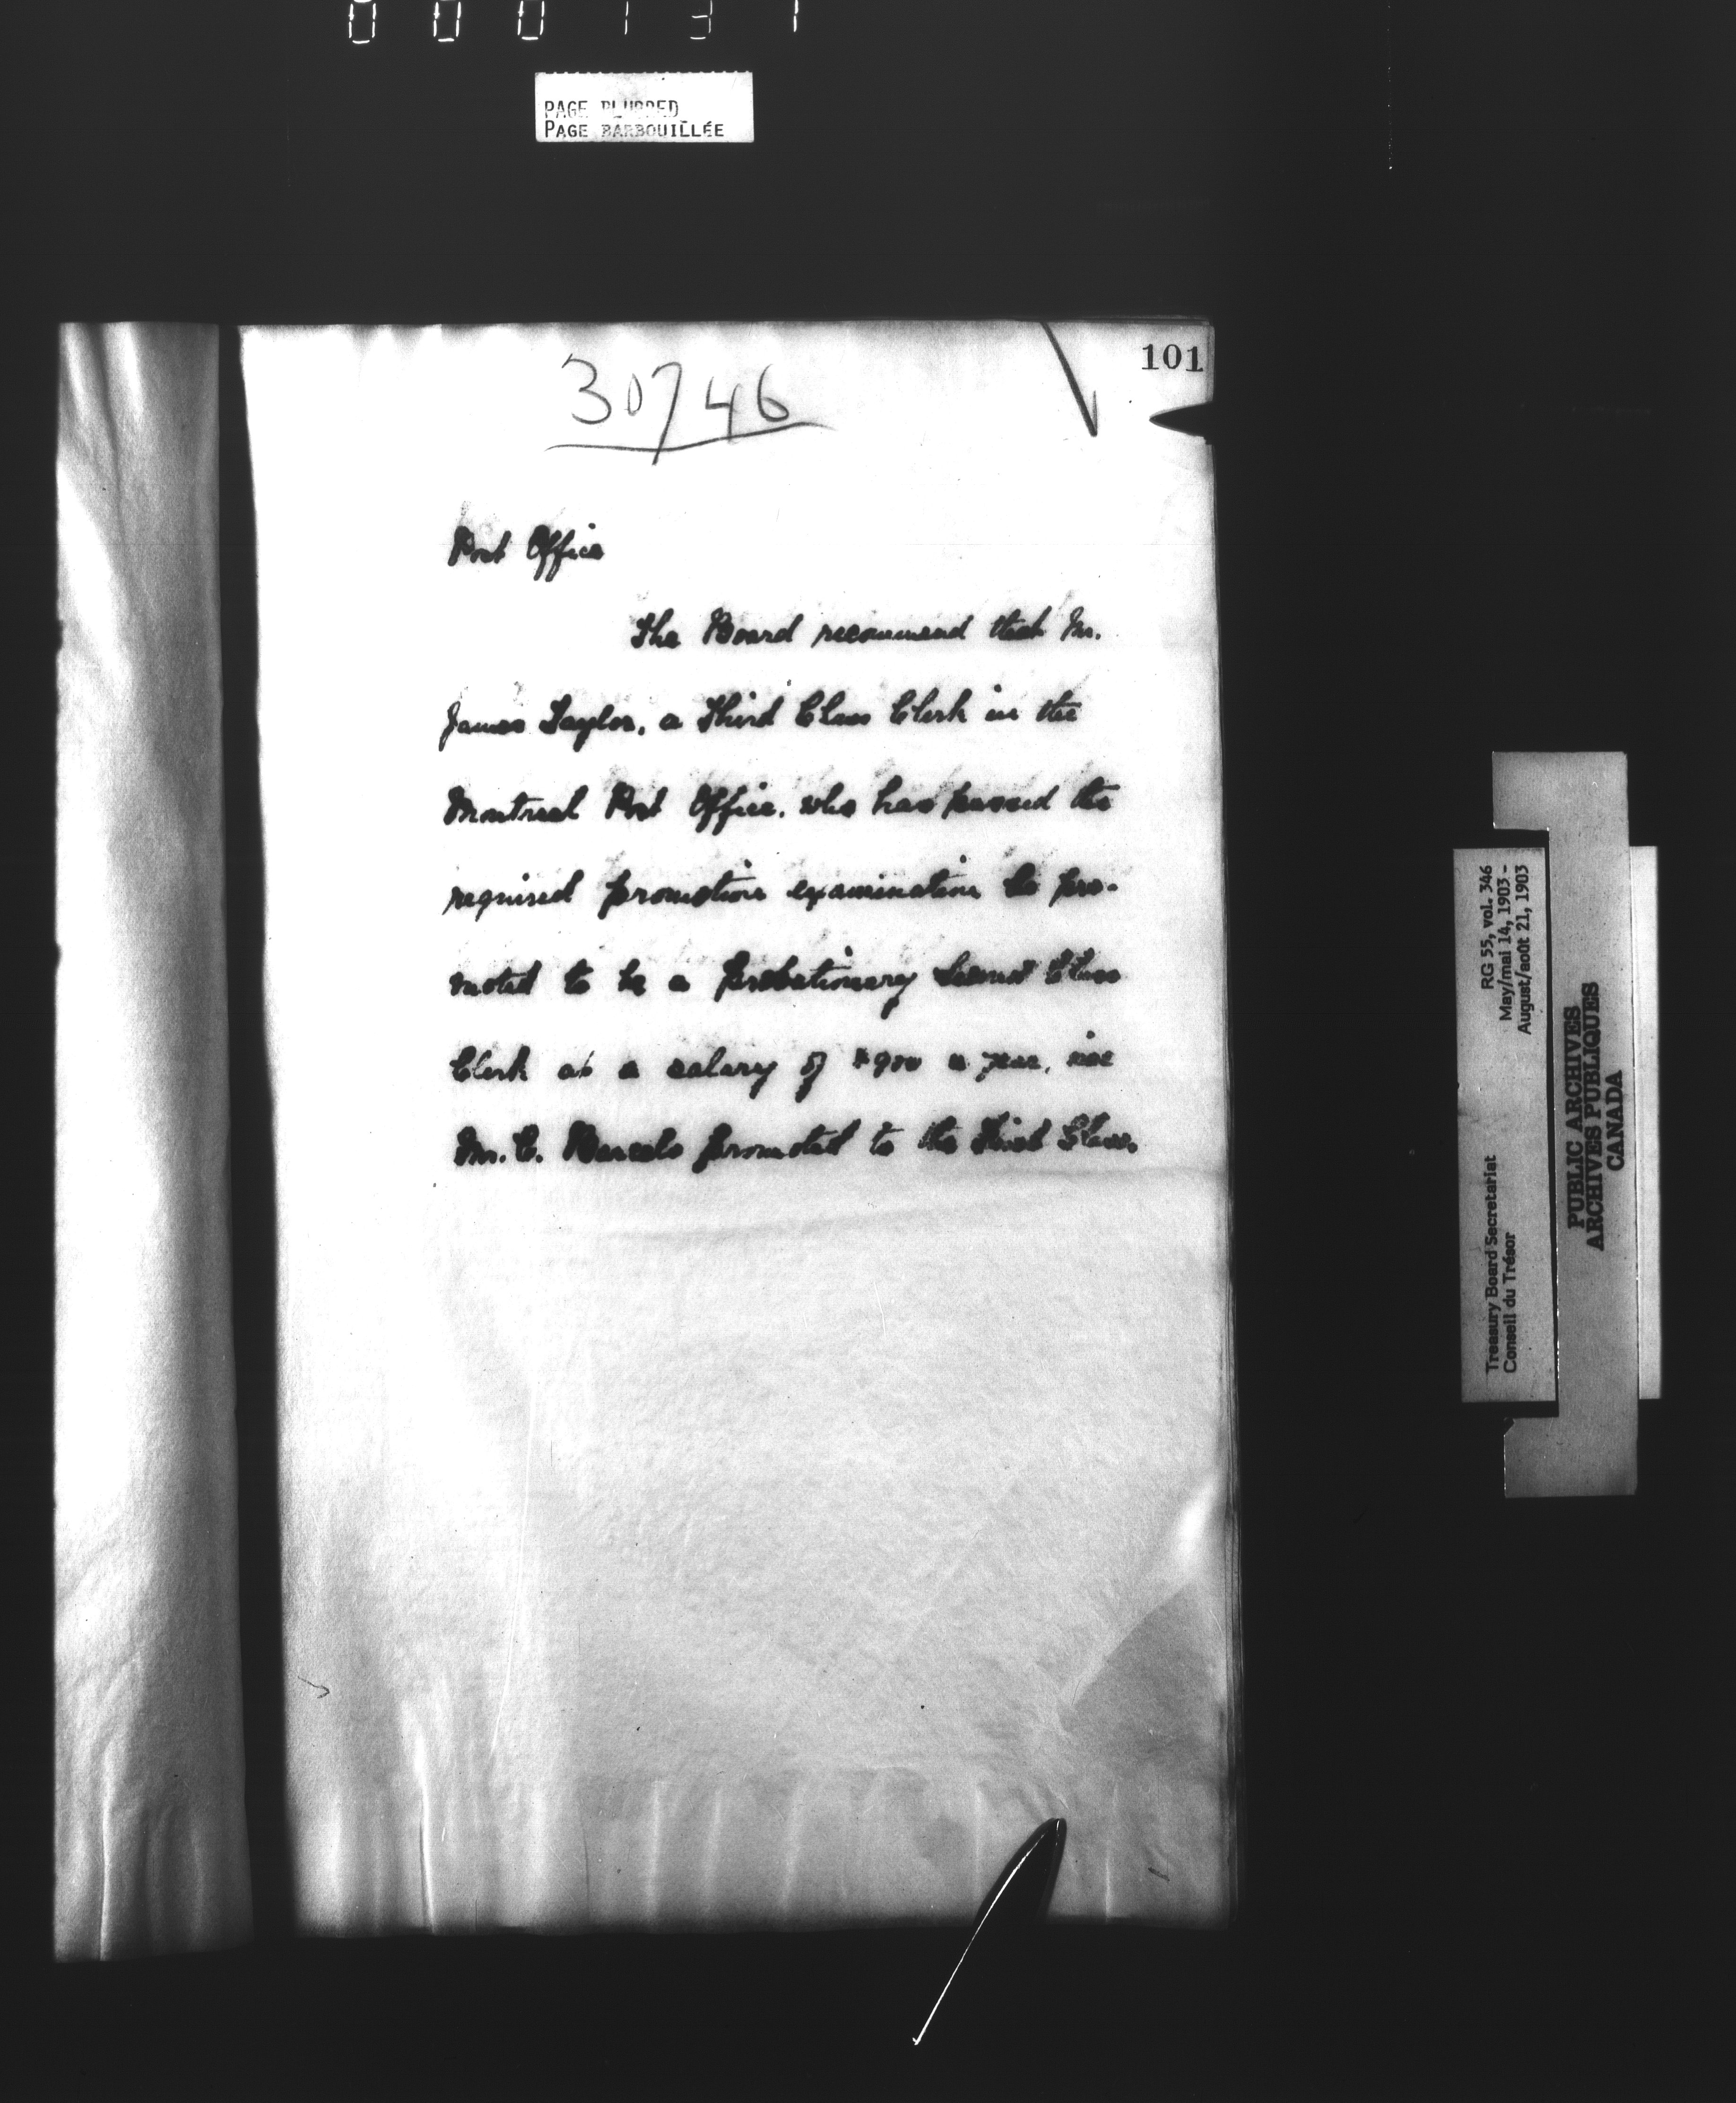 PAGE BLURRED
PAGE BARBOUILLÉE
101
30746
Post Office
The Board recommend that Mr.
James Taylor, a Third Class Clerk in the
Montreal Post Office, who has passed the
required promotion examination be pro-
moted to be a probationary Second Class
Clerk at a salary of $900 a year, vice
Mr. C. promoted to the First Class.
RG 55, vol. 346
May/mai 14, 1903 -
August/août 21, 1903
Treasury Board Secretariat
Conseil du Trésor
PUBLIC ARCHIVES
ARCHIVES PUBLIQUES
CANADA